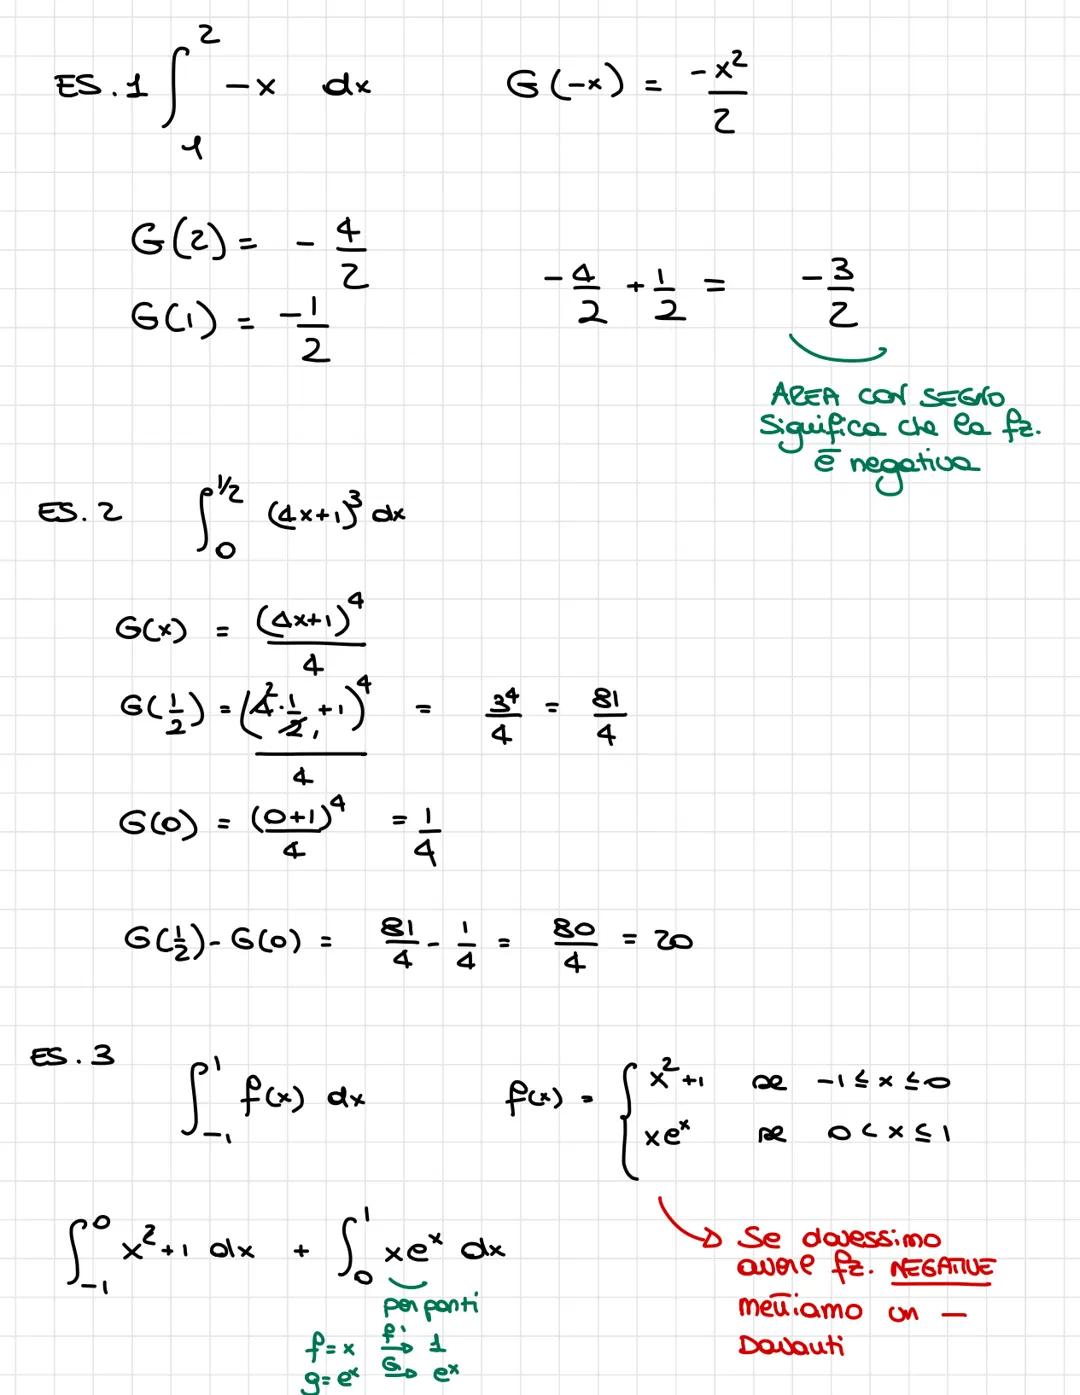 ES. 1 ∫₁² -x dx    G(-x) = -x²/2
G(2) = - 4/2
G(1) = -1/2    -4/2 + 1/2 = -3/2
AREA CON SEGNO
Significa che la fz.
è negativa
ES. 2 ∫₀^(1/2) (4x+1)³ dx
G(x) = (4x+1)⁴/4
G(1/2) = (4·1/2+1)⁴/4 = 3⁴/4 = 81/4
G(0) = (0+1)⁴/4 = 1/4
G(1/2) - G(0) = 81/4 - 1/4 = 80/4 = 20
ES. 3 ∫₋₁¹ f(x) dx    f(x) = { x²+1 se -1 ≤ x ≤ 0
xeˣ se 0 < x ≤ 1
∫₋₁⁰ x²+1 dx + ∫₀¹ xeˣ dx
per parti
f = x f'→ 1
g = eˣ G→ eˣ
→ Se dovessimo
avere fz. NEGATIVE
mettiamo un —
Davanti